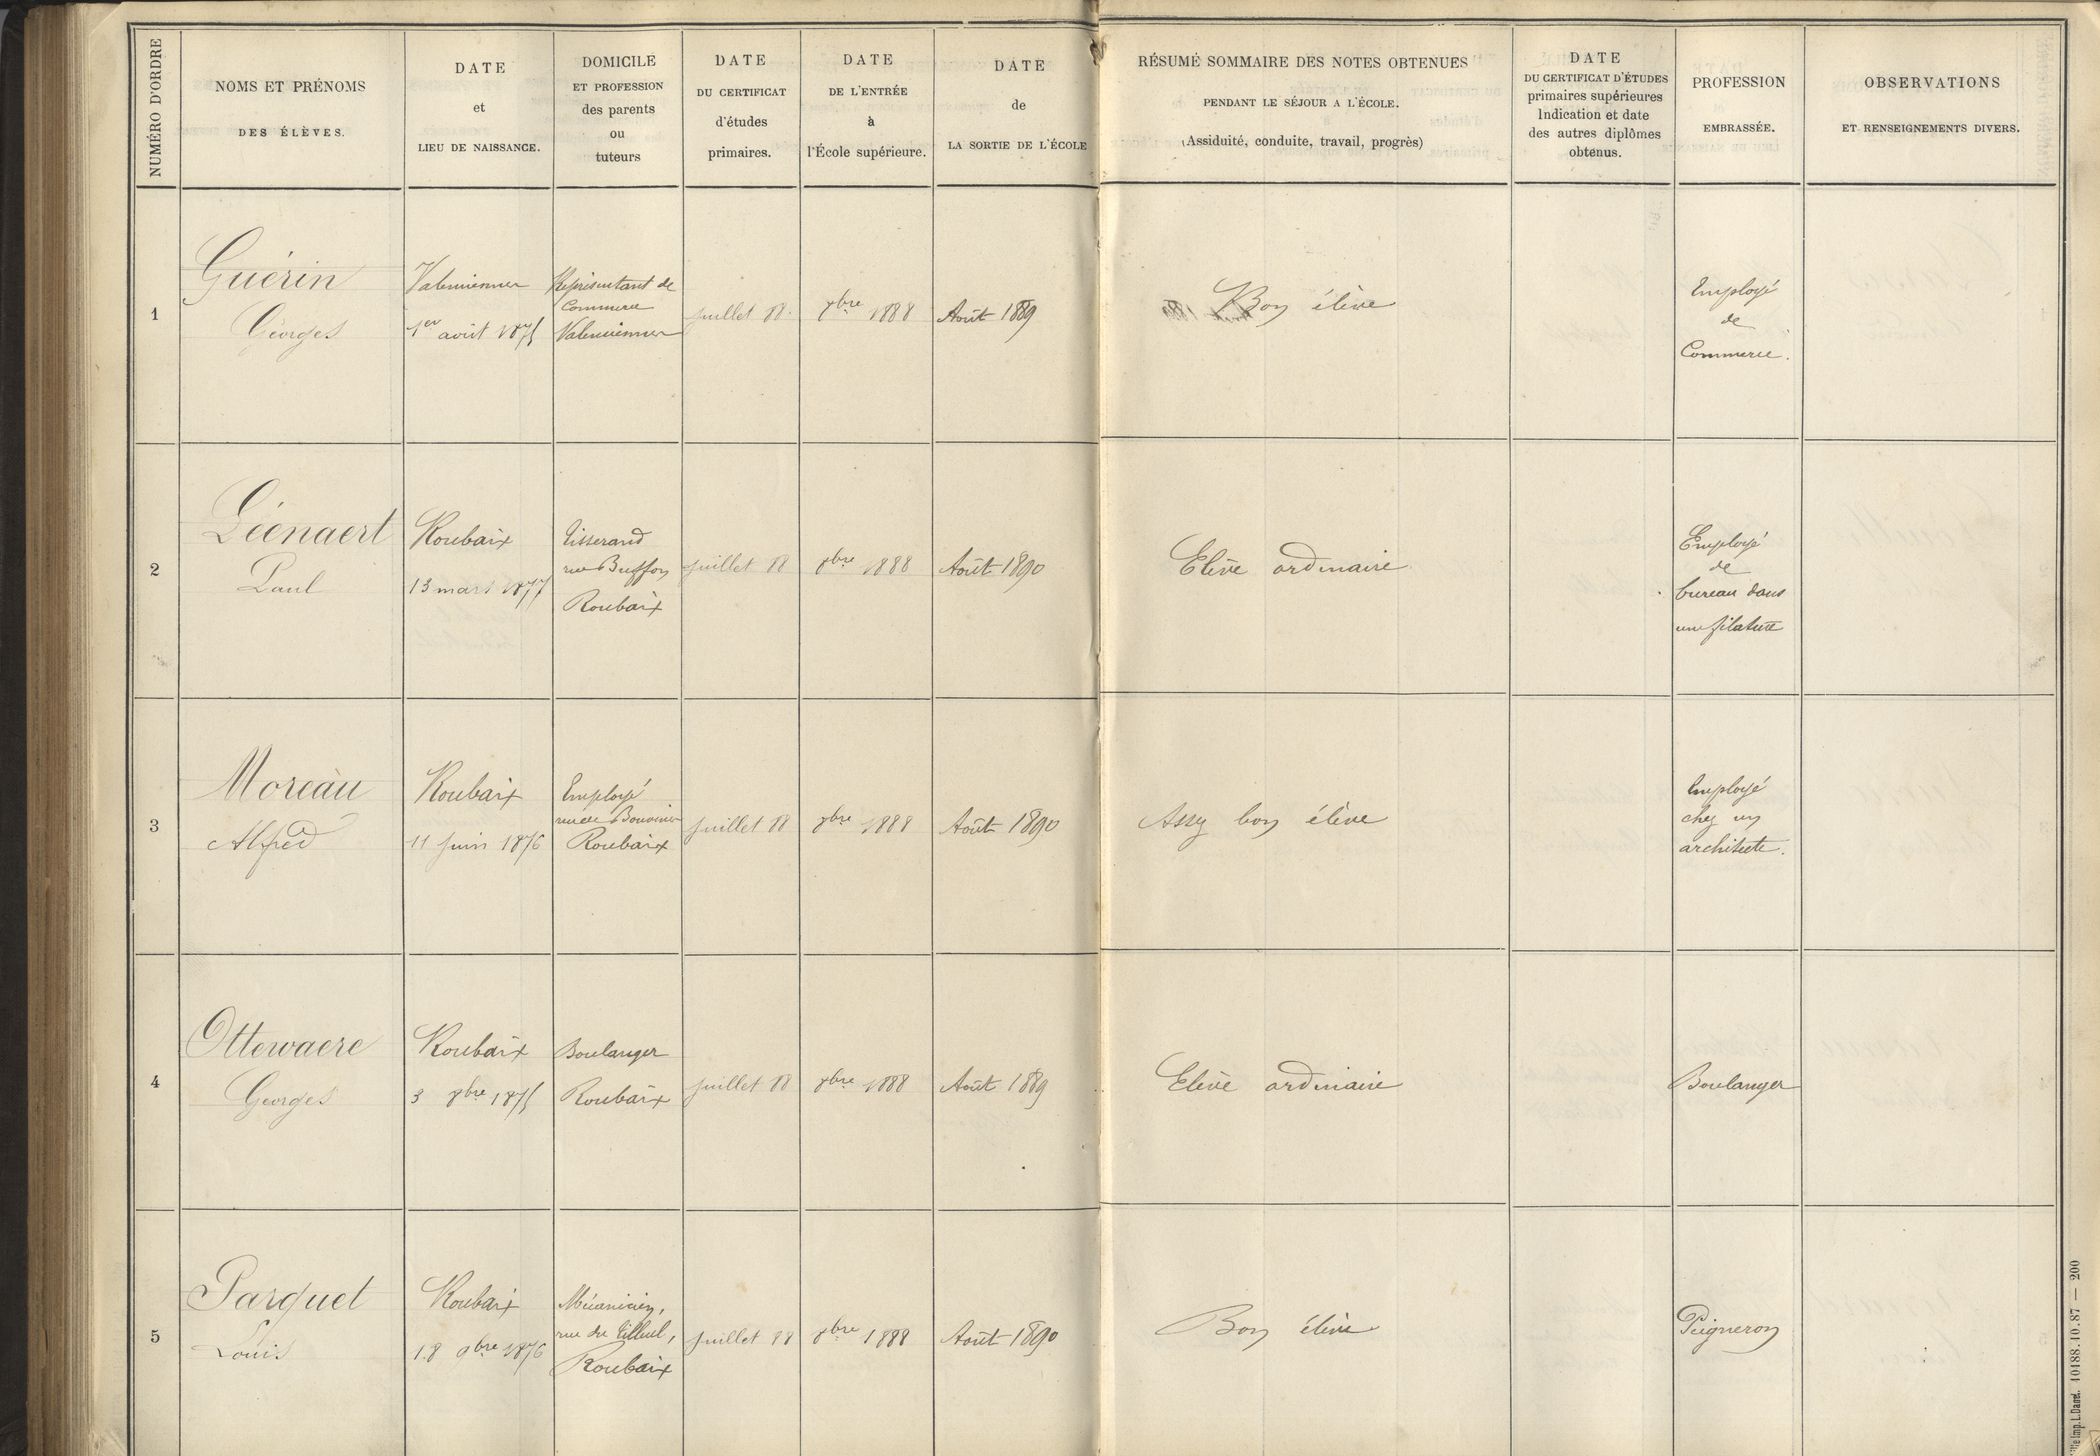 NUMÉRO D'ORDRE
NOMS ET PRÉNOMS
DES ÉLÈVES.
DATE
et
LIEU DE NAISSANCE.
DOMICILE
ET PROFESSION
des parents
ou
tuteurs
DATE
DU CERTIFICAT
d'études
primaires.
DATE
DE L'ENTRÉE
à
l'École supérieure.
DATE
de
LA SORTIE DE L'ÉCOLE
RÉSUMÉ SOMMAIRE DES NOTES OBTENUES
PENDANT LE SÉJOUR A L'ÉCOLE.
(Assiduité, conduite, travail, progrès)
DATE
DU CERTIFICAT D'ÉTUDES
primaires supérieures
Indication et date
des autres diplômes
obtenus.
PROFESSION
EMBRASSÉE.
OBSERVATIONS
ET RENSEIGNEMENTS DIVERS.
1
Guérin
Georges
Valenciennes
1er août 1875
Représentant de
Commerce
Valenciennes
juillet 88.
8bre 1888
Août 1889
Bon élève
Employé
de
Commerce.
2
Léenaert
Paul
Roubaix
13 mars 1877
Tisserand
rue Buffon
Roubaix
juillet 88
8bre 1888
Août 1890
Elève ordinaire
Employé
de
bureau dans
une filature
3
Moreau
Alfred
Roubaix
11 juin 1876
Employé
rue de Bouvines
Roubaix
juillet 88
8bre 1888
Août 1890
Assez bon élève
Employé
chez un
architecte.
4
Ottewaere
Georges
Roubaix
3 8bre 1875
Boulanger
Roubaix
juillet 88
8bre 1888
Août 1889
Elève ordinaire
Boulanger
5
Parquet
Louis
Roubaix
18 9bre 1876
Mécanicien,
rue du Tilleul,
Roubaix
juillet 88
8bre 1888
Août 1890
Bon élève
Peigneron
Imp. L. Danel. 10188.10.87 — 200